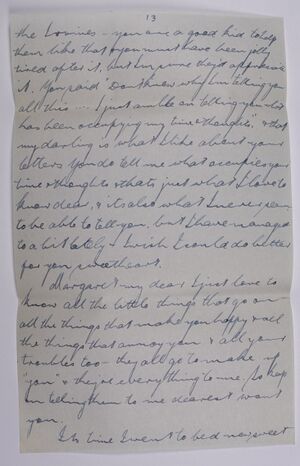 13
the Lovines - you are a good kid to help
them like that & you must have been jolly
tired after it, but I'm sure they'd appreciate
it. You said "Don't know why I'm telling you
all this ... I just amble on telling you what
has been occupying my time & thoughts" & that
my darling is what I like about your
letters. You do tell me what occupies your
time & thoughts & that's just what I love to
know dear, & it's also what I never seem
to be able to tell you, but I have managed
to a bit lately - I wish I could do better
for you sweetheart.
Margaret my dear I just love to
know all the little things that go on -
all the things that make you happy & all
the things that annoy you & all your
troubles too - they all go to make up
"you" & they're everything to me. So keep
on telling them to me dearest won't
you.
Its time I went to bed now sweet